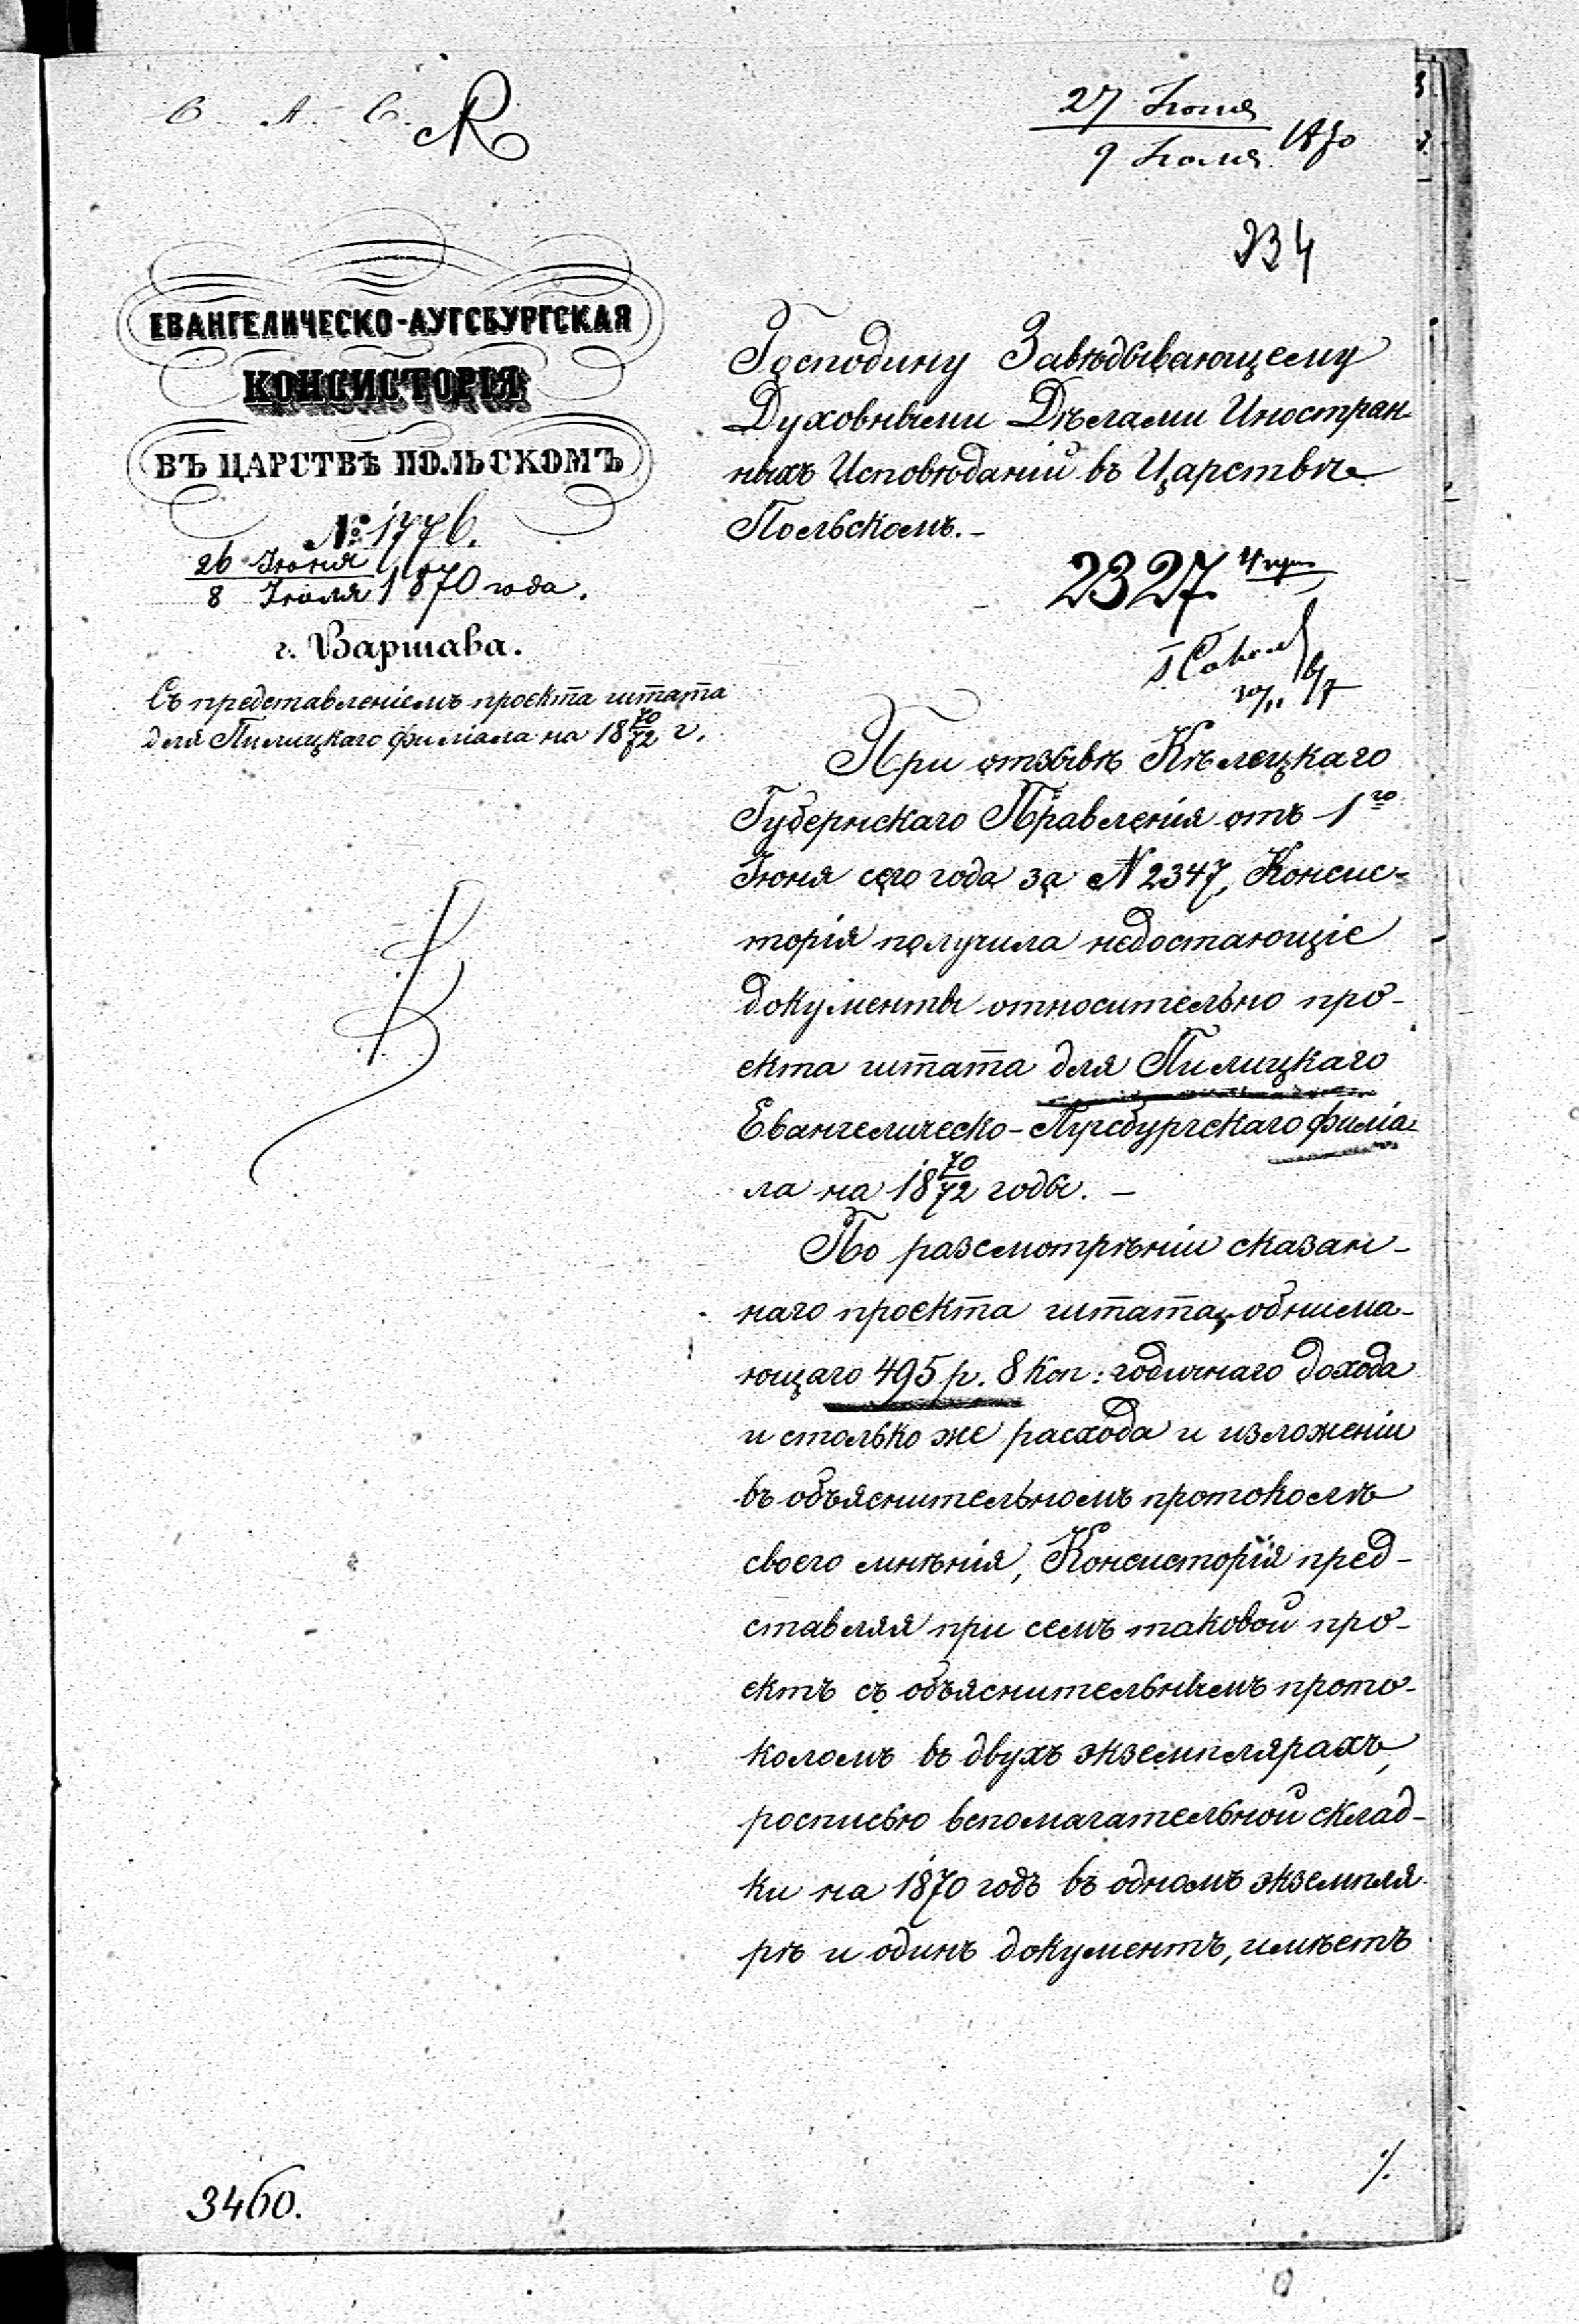 27 Іюня
9 Іюля 1870
234
ЕВАНГЕЛИЧЕСКО-АУГСБУРГСКАЯ
КОНСИСТОРІЯ
ВЪ ЦАРСТВѢ ПОЛЬСКОМЪ
№ 1776.
26 Іюня
8 Іюля 1870 года.
г. Варшава.
Съ представленіемъ проекта штата
для Пилицкаго филіала на 18 70/72 г.
Господину Завѣдывающему
Духовными Дѣлами Иностран-
ныхъ Исповѣданій въ Царствѣ
Польскомъ.-
2327
При отзывѣ Кѣлецкаго
Губернскаго Правленія отъ 1го
Іюня сего года за N 2347, Консис-
торія получила недостающіе
документы относительно про-
екта штата для Пилицкаго
Евангелическо-Аугсбургскаго филіа-
ла на 18 70/72 годы. -
По разсмотрѣніи сказан-
наго проекта штата, обнима-
ющаго 495 р. 8 коп: годичнаго дохода
и столько же расхода и изложеніи
въ объяснительномъ протоколѣ
своего мнѣнія, Консисторія пред-
ставляя при семъ таковой про-
ектъ съ объяснительнымъ прото-
коломъ въ двухъ экземплярахъ,
росписью вспомагательной склад-
ки на 1870 годъ въ одномъ экземпля
рѣ и одинъ документъ, имѣетъ
./.
3460.